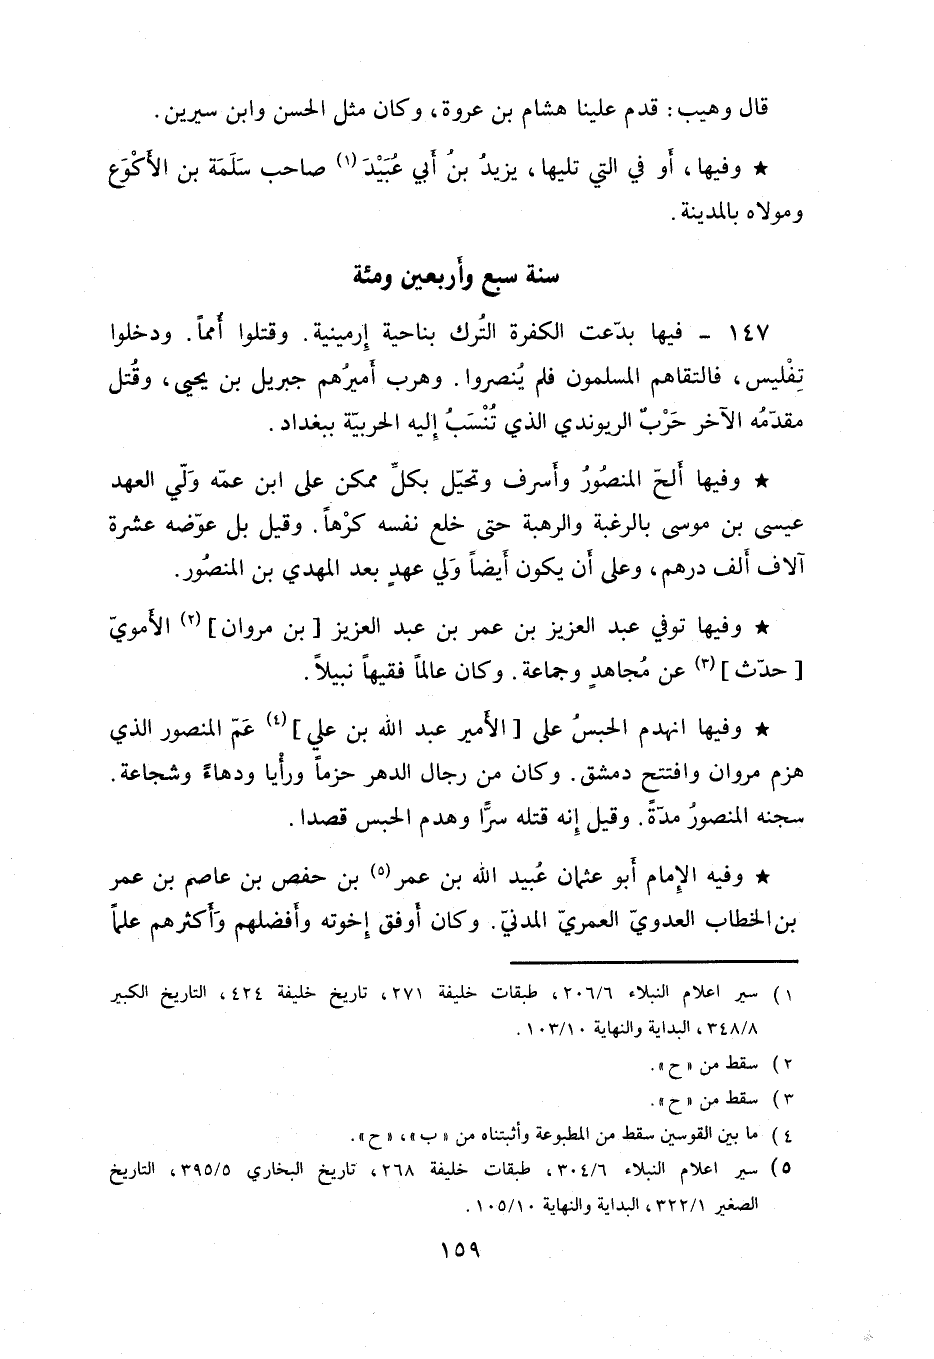 قال وهيب: قدم علينا هشام بن عروة، وكان مثل الحسن وابن سيرين.
★ وفيها، أو في التي تليها، يزيدُ بنُ أَبي عُبَيْدَ (١) صاحب سَلَمَة بن الأَكْوَع
ومولاه بالمدينة.
سنة سبع وأَربعين ومئة
١٤٧ - فيها بدّعت الكفرة التُرك بناحية إِرمينية. وقتلوا أُمماً. ودخلوا
تِفْليس، فالتقاهم المسلمون فلم يُنصروا. وهرب أَميرُهم جبريل بن يحيى، وقُتل
مقدّمُه الآخر حَرْبٌ الريوندي الذي تُنْسَبُ إِليه الحربيّة ببغداد.
★ وفيها أَلحّ المنصُورُ وأَسرف وتحيّل بكلِّ ممكن على ابن عمّه وَلّي العهد
عيسى بن موسى بالرغبة والرهبة حتى خلع نفسه كرْهاً. وقيل بل عوّضه عشرة
آلاف أَلف درهم، وعلى أَن يكون أَيضاً وَلي عهدٍ بعد المهدي بن المنصُور.
★ وفيها توفي عبد العزيز بن عمر بن عبد العزيز [ بن مروان ] (٢) الأَمويّ
[ حدّث ] (٣) عن مُجاهدٍ وجماعة. وكان عالماً فقيهاً نبيلاً.
★ وفيها انهدم الحبسُ على [ الأَمير عبد الله بن علي ] (٤) عَمّ المنصور الذي
هزم مروان وافتتح دمشق. وكان من رجال الدهر حزماً ورأْيا ودهاءً وشجاعة.
سجنه المنصورُ مدّةً. وقيل إِنه قتله سرًّا وهدم الحبس قصدا.
★ وفيه الإِمام أَبو عثمان عُبيد الله بن عمر (٥) بن حفص بن عاصم بن عمر
بن الخطاب العدويّ العمريّ المدنيّ. وكان أَوفق إِخوته وأَفضلهم وأَكثرهم علماً
١) سير اعلام النبلاء ٢٠٦/٦، طبقات خليفة ٢٧١، تاريخ خليفة ٤٢٤، التاريخ الكبير
٣٤٨/٨، البداية والنهاية ١٠٣/١٠.
٢) سقط من «ح».
٣) سقط من «ح».
٤) ما بين القوسين سقط من المطبوعة وأثبتناه من «ب»، «ح».
٥) سير اعلام النبلاء ٣٠٤/٦، طبقات خليفة ٢٦٨، تاريخ البخاري ٣٩٥/٥، التاريخ
الصغير ٣٢٢/١، البداية والنهاية ١٠٥/١٠.
١٥٩